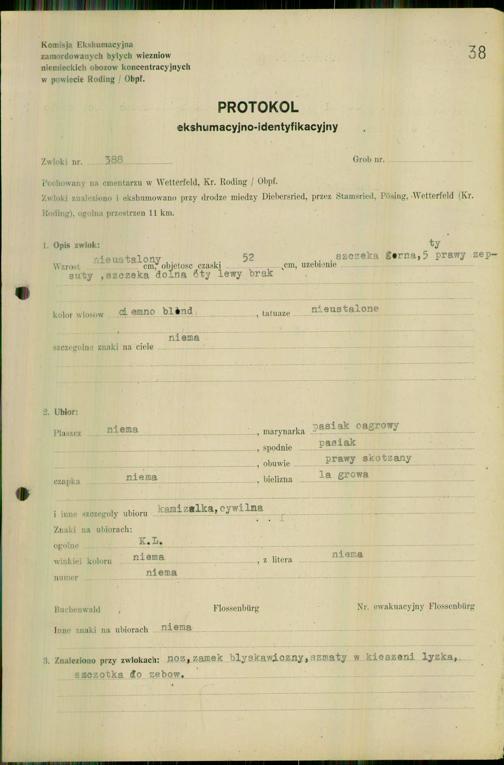 Komisja Ekshumacyjna
zamordowanych byłych wiezniow
niemieckich obozow koncentracyjnych
w powiecie Roding / Obpf.
38
PROTOKOL
ekshumacyjno-identyfikacyjny
Zwloki nr. 388 Grob nr.
Pochowany na cmentarzu w Wetterfeld, Kr. Roding / Obpf.
Zwloki znaleziono i ekshumowano przy drodze miedzy Diebersried, przez Stamsried, Pösing, Wetterfeld (Kr.
Roding), ogolna przestrzen 11 km.
1. Opis zwlok:
ty
Wzrost nieustalony cm, objetosc czaski 52 cm, uzebienie szczeka gorna, 5 prawy zep-
suty , szczeka dolna 6ty lewy brak
kolor wlosow ciemno blond , tatuaze nieustalone
szczegolne znaki na ciele niema
2. Ubior:
Plaszcz niema , marynarka pasiak oagrowy
, spodnie pasiak
, obuwie prawy skotzany
czapka niema , bielizna lagrowa
i inne szczegoly ubioru kamizelka, cywilna
Znaki na ubiorach:
ogolne K.L.
winkiel koloru niema , z litera niema
numer niema
Buchenwald , Flossenbürg Nr. ewakuacyjny Flossenbürg
Inne znaki na ubiorach niema
3. Znaleziono przy zwlokach: noz, zamek blyskawiczny, szmaty w kieszeni lyzka,
szczotka do zebow.